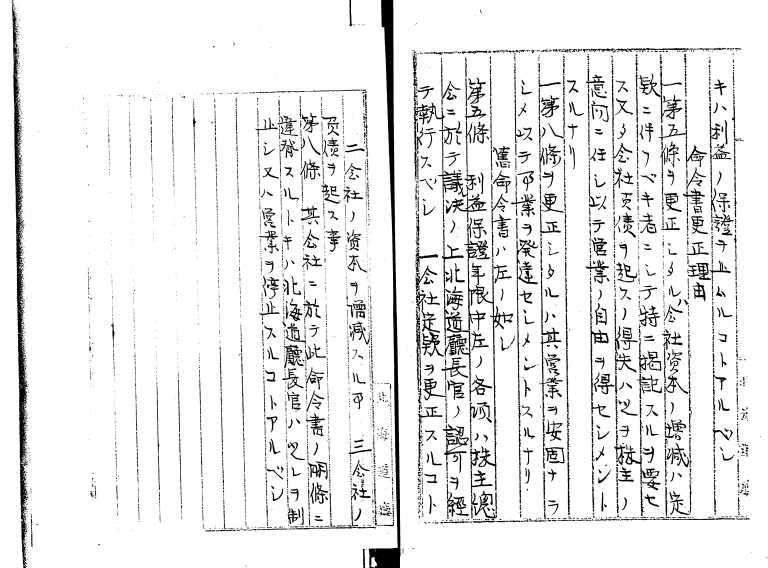 キハ利益ノ保證ヲ止ムルコトアルベシ
命令書更正理由
一第五條ヲ更正シタルハ会社資本ノ増減ハ定
欵ニ伴フベキ者ニシテ特ニ掲記スルヲ要セ
ス又タ会社負債ヲ起スノ得失ハ之ヲ株主ノ
意向ニ任シ以テ営業ノ自由ヲ得セシメント
スルナリ
一第八條ヲ更正シタルハ其営業ヲ安固ナラ
シメ以テ事業ヲ発達セシメントスルナリ
舊命令書ハ左ノ如シ
第五條 利益保證年限中左ノ各項ハ株主総
会ニ於テ議決ノ上北海道廳長官ノ認可ヲ経
テ執行スベシ 一会社定欵ヲ更正スルコト
二会社ノ資本ヲ増減スル事 三会社ノ
負債ヲ起ス事
第八條 其会社ニ於テ此命令書ノ明條ニ
違背スルトキハ北海道廳長官ハ之レヲ制
止シ又ハ営業ヲ停止スルコトアルベシ
北海道廳